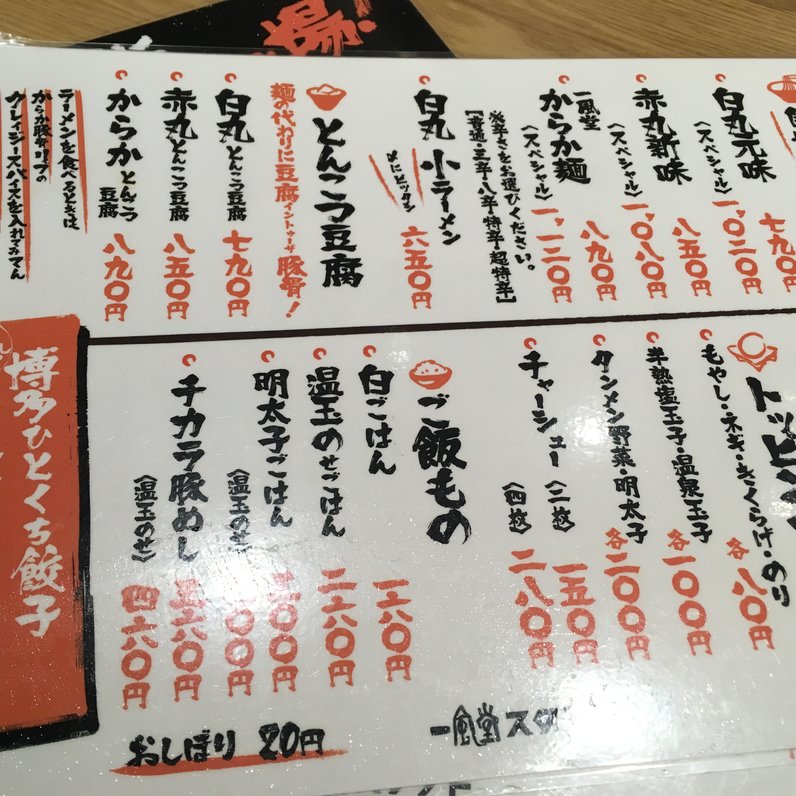 七九〇円
白丸元味
〈スペシャル〉 一、〇二〇円
赤丸新味 八五〇円
〈スペシャル〉 一、〇八〇円
一風堂
からか麺 八九〇円
〈スペシャル〉 一、一二〇円
※辛さをお選びください。
[普通・三辛・八辛・特辛・超特辛]
白丸 小ラーメン 六五〇円
〆にピッタシ
とんこつ豆腐
麺の代わりに豆腐イントゥーザ豚骨!
白丸とんこつ豆腐 七九〇円
赤丸とんこつ豆腐 八五〇円
からかとんこつ豆腐 八九〇円
ラーメンを食べるときは
からか豚キリブの
クレイジースパイスを入れてみてん
トッピン
もやし・ネギ・きくらげ・のり 各八〇円
半熟塩玉子・温泉玉子 各一〇〇円
タンメン野菜・明太子 各二〇〇円
チャーシュー 〈二枚〉 一五〇円
〈四枚〉 二八〇円
ご飯もの
白ごはん 一六〇円
温玉のせごはん 二六〇円
明太子ごはん 三〇〇円
〈温玉のせ〉 〇〇円
チカラ豚めし 三六〇円
〈温玉のせ〉 四六〇円
博多ひとくち餃子
おしぼり 20円
一風堂スタ